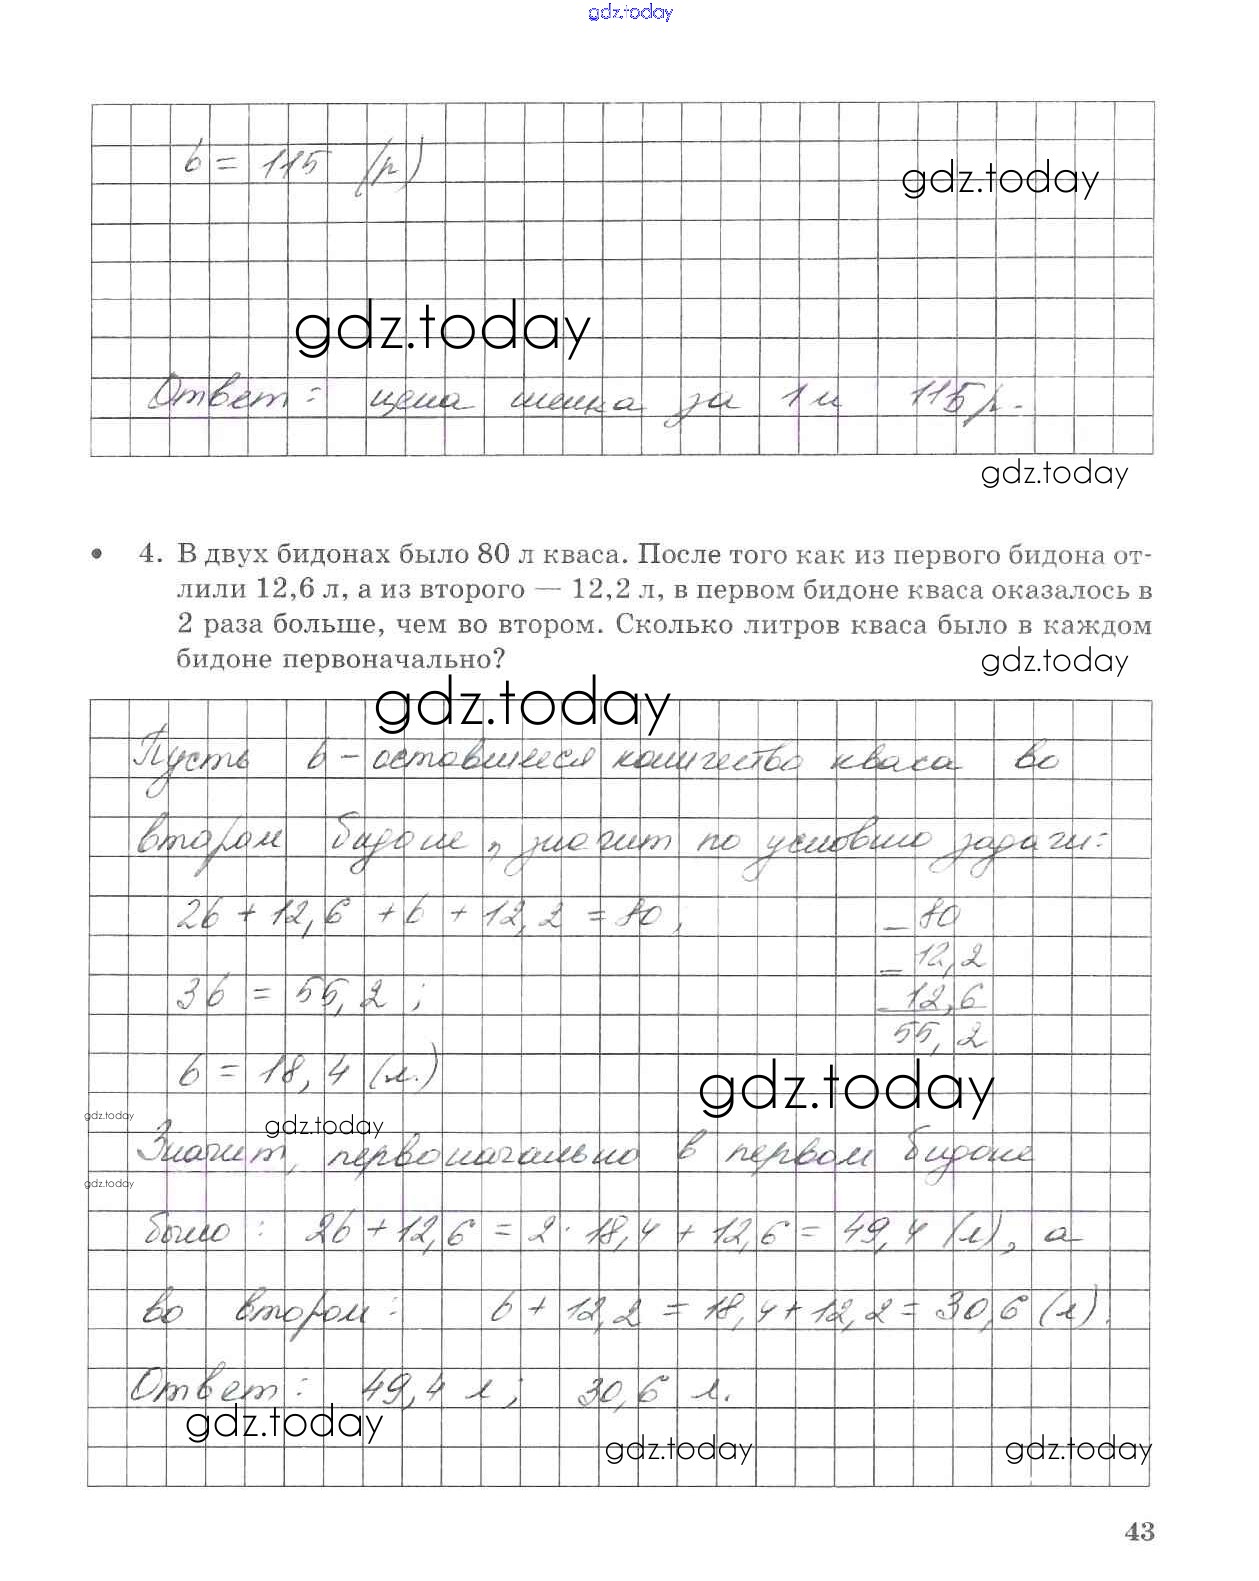 gdz.today
b = 115 (р)
gdz.today
gdz.today
Ответ: цена шелка за 1 м 115 р.
gdz.today
• 4. В двух бидонах было 80 л кваса. После того как из первого бидона от-
лили 12,6 л, а из второго — 12,2 л, в первом бидоне кваса оказалось в
2 раза больше, чем во втором. Сколько литров кваса было в каждом
бидоне первоначально?
gdz.today
gdz.today
Пусть b – оставшееся количество кваса во
втором бидоне, значит по условию задачи:
2b + 12,6 + b + 12,2 = 80,
– 80
– 12,2
3b = 55,2 ;
- 12,6
55,2
b = 18,4 (л.)
gdz.today
gdz.today
gdz.today
Значит, первоначально в первом бидоне
gdz.today
было : 2b + 12,6 = 2 · 18,4 + 12,6 = 49,4 (л), а
во втором: b + 12,2 = 18,4 + 12,2 = 30,6 (л).
Ответ: 49,4 л ; 30,6 л.
gdz.today
gdz.today
gdz.today
43